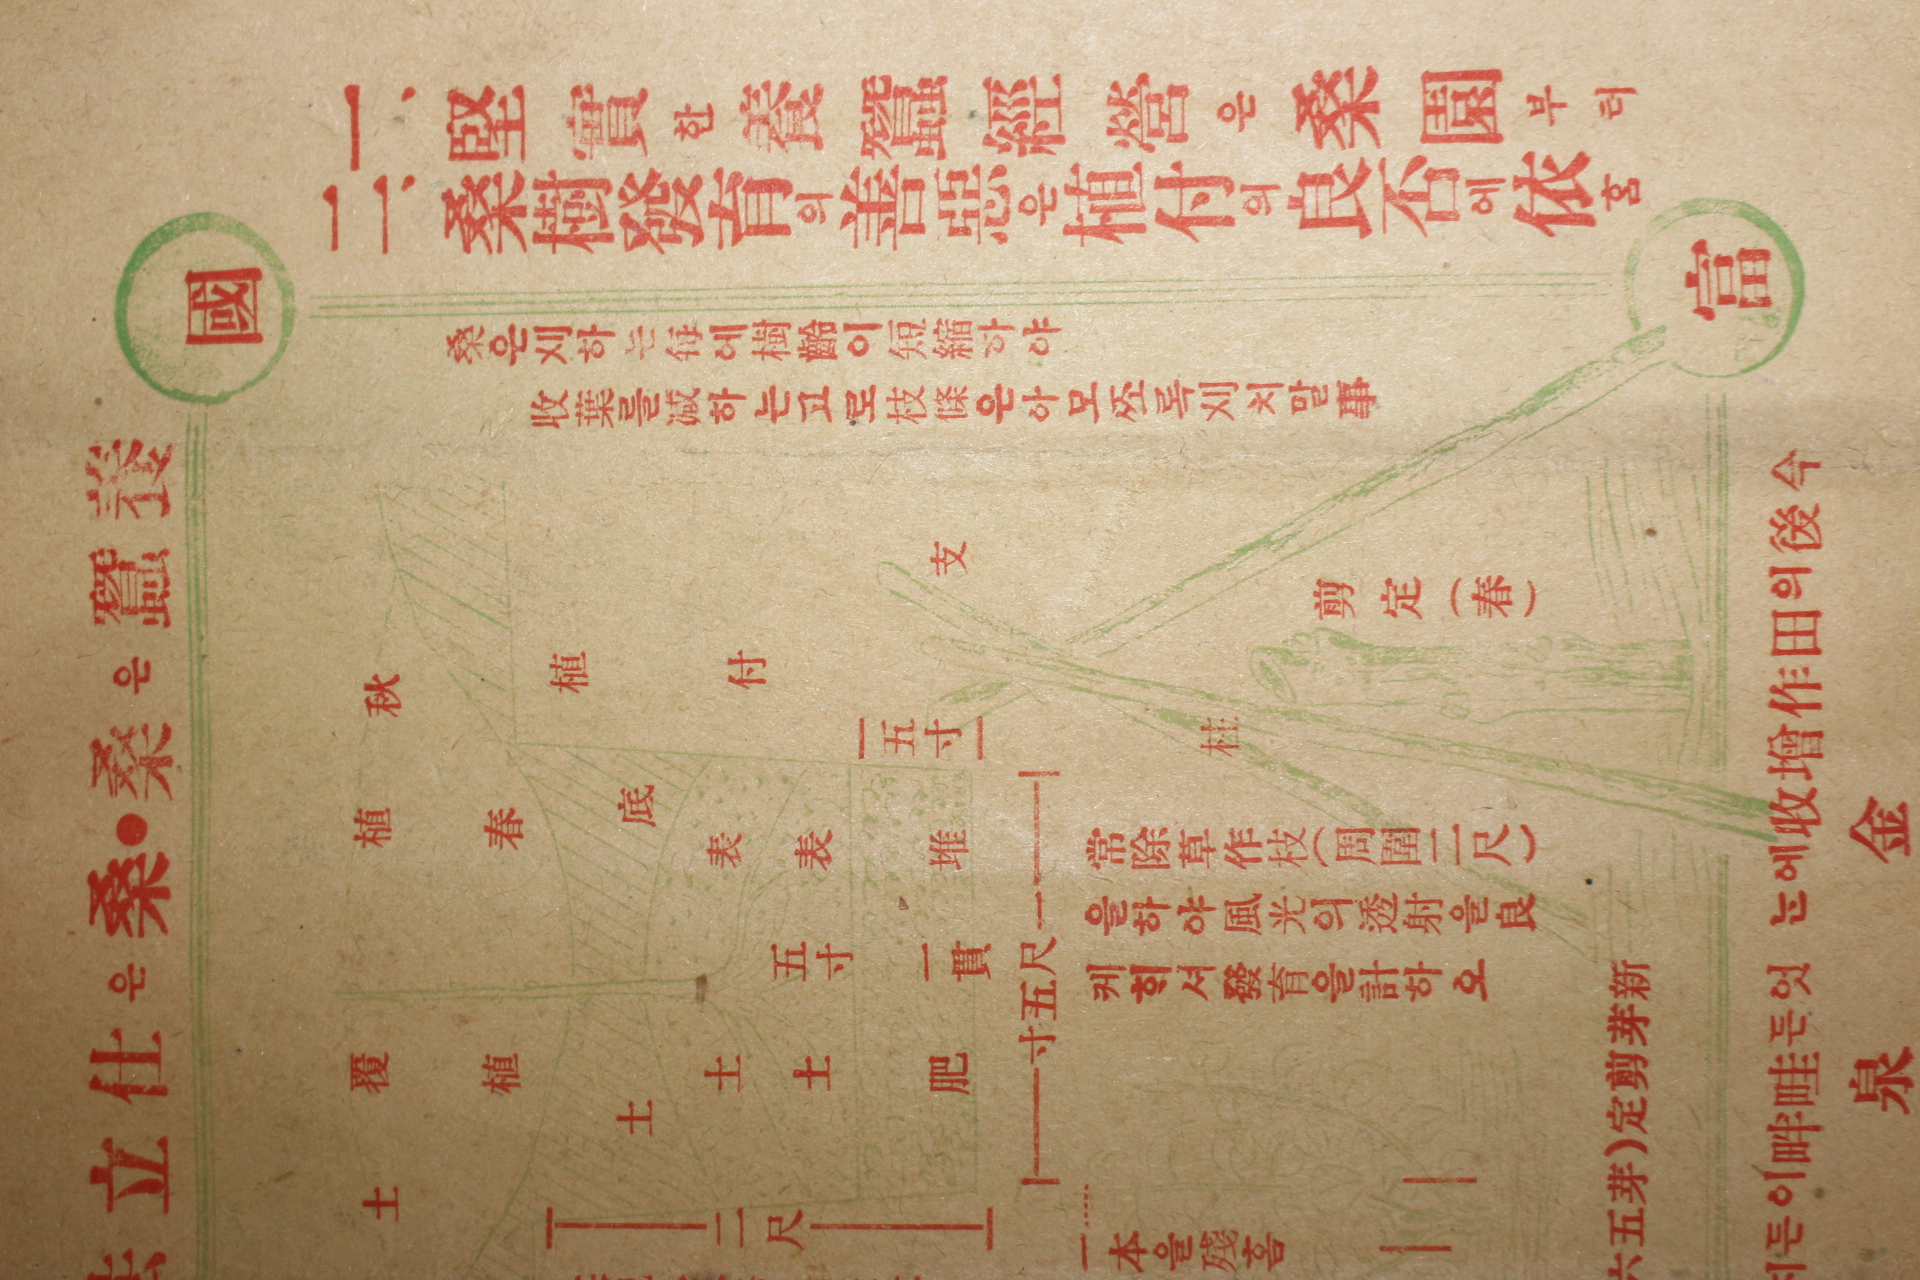 一、堅實한養蠶經營은桑園부터
二、桑樹發育의善惡은植付의良否에依홈
國
當
養蠶은桑●桑은仕立
桑은刈하는每에樹齡이短縮하야
收葉를減하는고로枝條은아모쪼록刈치말事
植付
秋植覆土
春植
底土
表土
表土
五寸
堆肥
一貫
五寸
一尺五寸
二尺
支柱
剪定(春)
常除草作枝(周圍二尺)
을하야風光의透射을良
케희셔發育을計하오
一本을殘홈
新芽剪定(芽五六
今後의田作增收에는 엇든畦畔이든
金泉